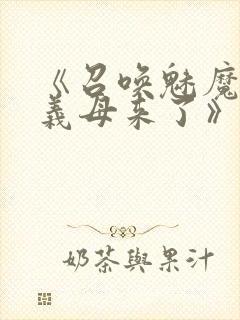 《召喚魅魔
義母來了》
奶茶與果汁